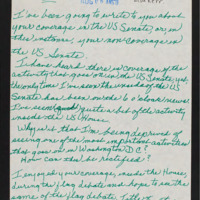 I've been going to write to you about
your coverage in the US Senate, or in
this instance your non coverage in
the US Senate
I have heard there is coverage of the
activity that goes on in the US Senate, yet
the only time I've seen the inside of the US
Senate has been on the 6 o'clock news!
I've seen quite a bit of the activity
inside the US House
Why is it that I'm being deprived of
seeing one of the most important activities
that goes on in Washington DC?
How can this be rectified?
I enjoyed your coverage, inside the House,
during the flag debate and hope to see the
same of the flag debate